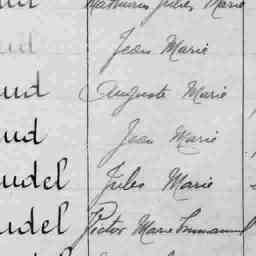 Mathurin Jules Marie
Jean Marie
uud Auguste Marie
ud Jean Marie
udel Jules Marie
udel Victor Marie Emmanuel